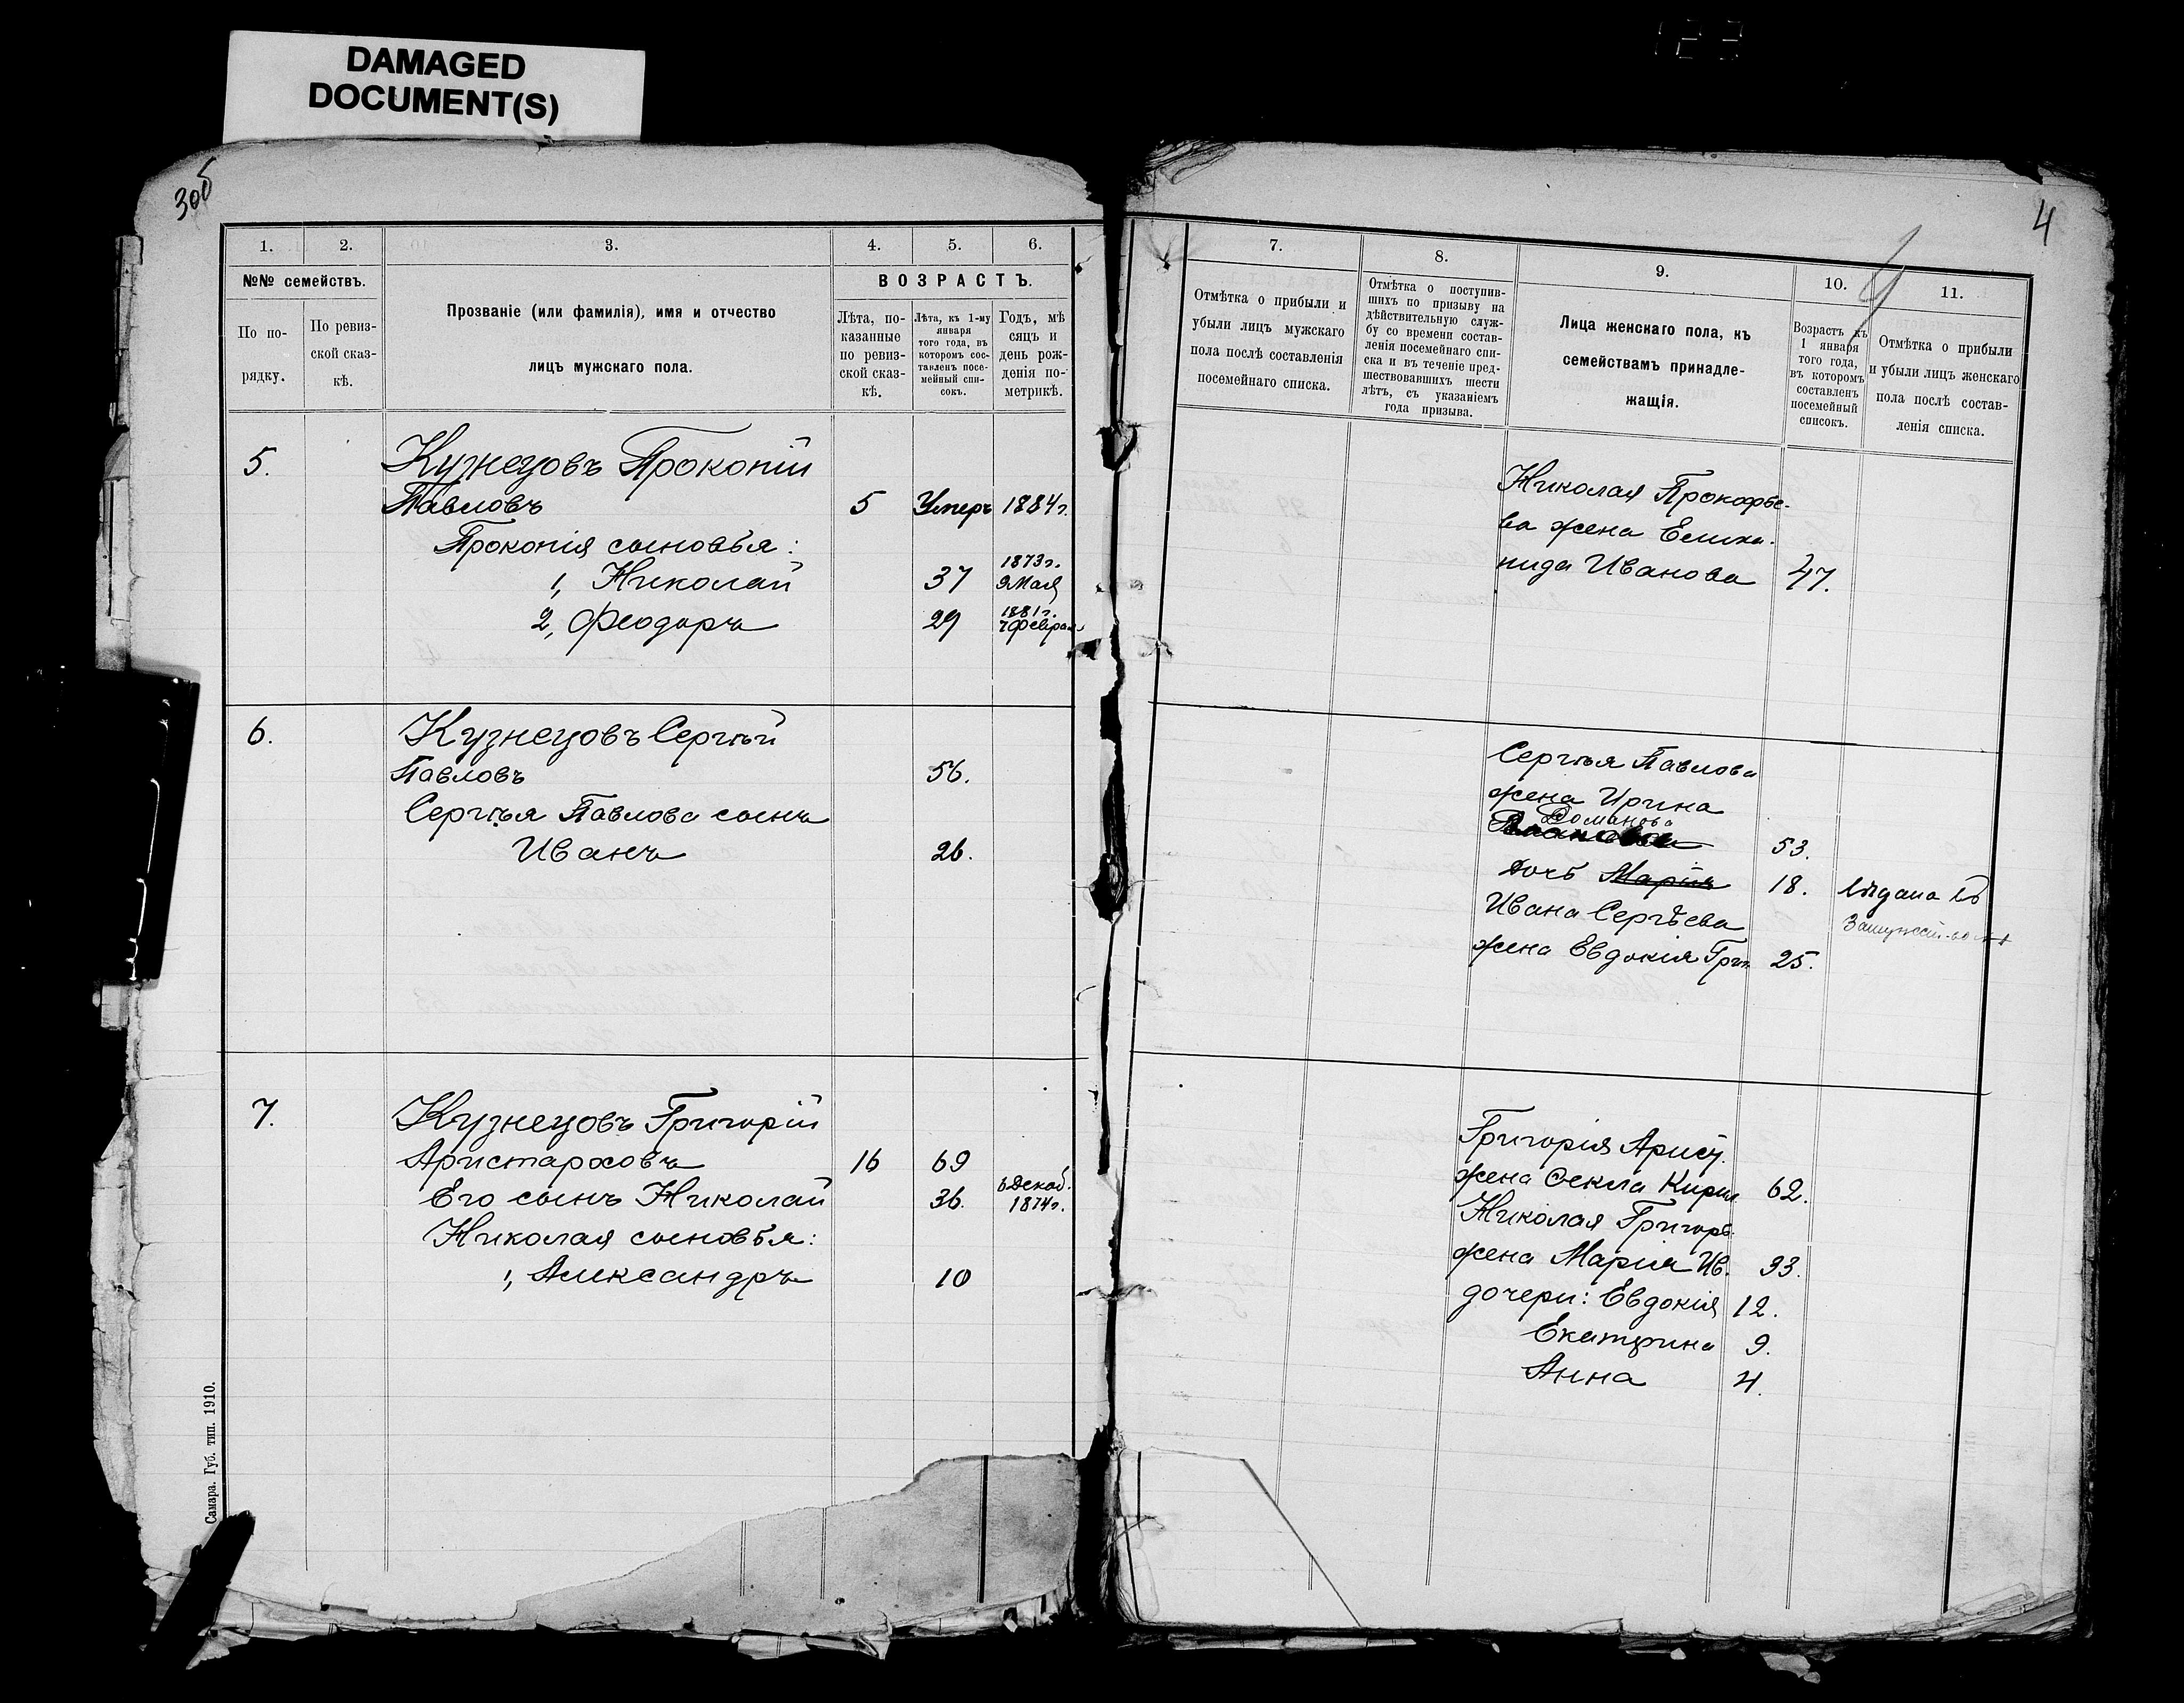 DAMAGED
DOCUMENT(S)
123
3об
1.
2.
3.
4.
5.
6.
№№ семействъ.
По по-
рядку.
По ревиз-
ской сказ-
кѣ.
Прозваніе (или фамилія), имя и отчество
лицъ мужскаго пола.
ВОЗРАСТЪ.
Лѣта, по-
казанные
по ревиз-
ской сказ-
кѣ.
Лѣта, къ 1-му
января
того года, въ
которомъ сос-
тавленъ посе-
мейный спи-
сокъ.
Годъ, мѣ
сяцъ и
день рож-
денія по-
метрикѣ.
5.
Кузнецовъ Прокопій
Павловъ 5 Умеръ 1884 г.
Прокопія сыновья:
1, Николай 37 1873 г.
9 Мая
2, Феодоръ 29 1881 г.
7 Феврал
6.
Кузнецовъ Сергѣй
Павловъ 56.
Сергѣя Павлова сынъ
Иванъ 26.
7.
Кузнецовъ Григорій
Аристарховъ 16 69
Его сынъ Николай 36. 6 Декаб.
1874 г.
Николая сыновья:
1, Александръ 10
Самара. Губ. тип. 1910.
4
4
7.
8.
9.
10.
11.
Отмѣтка о прибыли и
убыли лицъ мужскаго
пола послѣ составленія
посемейнаго списка.
Отмѣтка о поступив-
шихъ по призыву на
дѣйствительную служ-
бу со времени состав-
ленія посемейнаго спи-
ска и въ теченіе пред-
шествовавшихъ шести
лѣтъ, съ указаніемъ
года призыва.
Лица женскаго пола, къ
семействамъ принадле-
жащія.
Возрастъ къ
1 января
того года,
въ которомъ
составленъ
посемейный
списокъ.
Отмѣтка о прибыли
и убыли лицъ женскаго
пола послѣ состав-
ленія списка.
Николая Прокофье-
ва жена Елика-
нида Иванова 47.
Сергѣя Павлова
жена Ирина
Романова
53.
дочь Марія 18. выдана въ
замужест-во
Ивана Сергѣева
жена Евдокія Григ. 25.
Григорія Арист.
жена Фекла Кирил. 62.
Николая Григорь.
жена Марія Ив. 33.
дочери: Евдокія 12.
Екатерина 9.
Анна 4.